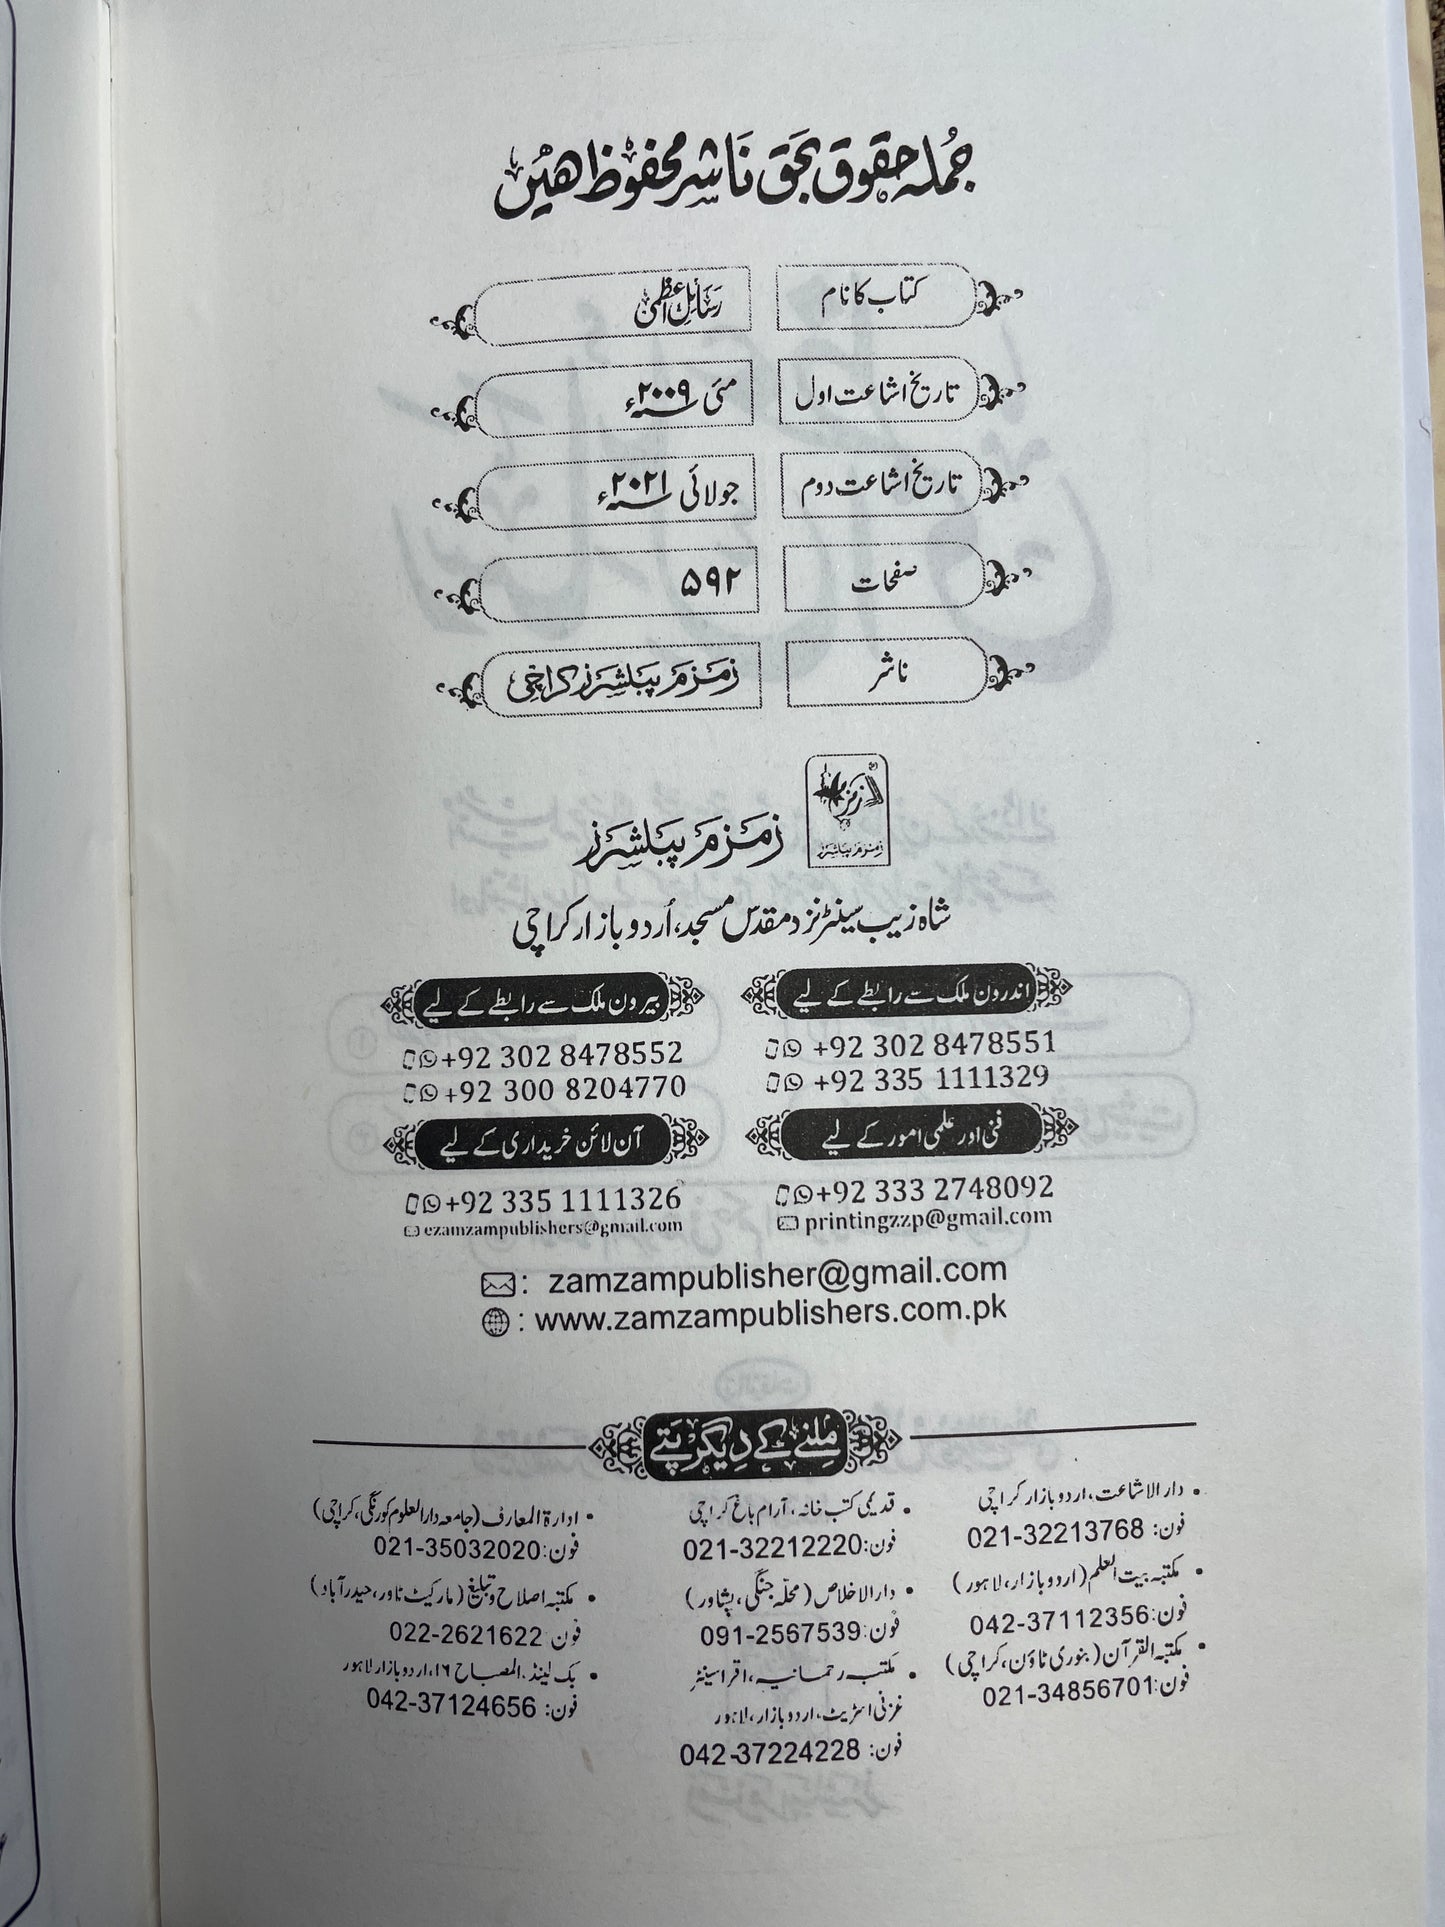 جملہ حقوق بحق ناشر محفوظ ھیں
کتاب کا نام رسائل اعظمی
تاریخ اشاعت اول مئی ۲۰۰۹ء
تاریخ اشاعت دوم جولائی ۲۰۲۱ء
صفحات ۵۹۲
ناشر زمزم پبلشرز کراچی
زمزم
زمزم پبلشرز
زمزم پبلشرز
شاہ زیب سینٹر نزد مقدس مسجد، اُردو بازار کراچی
اندرون ملک سے رابطے کے لیے
+92 302 8478551
+92 335 1111329
بیرون ملک سے رابطے کے لیے
+92 302 8478552
+92 300 8204770
فنی اور علمی امور کے لیے
+92 333 2748092
printingzzp@gmail.com
آن لائن خریداری کے لیے
+92 335 1111326
ezamzampublishers@gmail.com
: zamzampublisher@gmail.com
: www.zamzampublishers.com.pk
ملنے کے دیگر پتے
• دار الاشاعت، اردو بازار کراچی
فون: 021-32213768
• مکتبہ بیت العلم (اردو بازار، لاہور)
فون: 042-37112356
• مکتبۃ القرآن (بنوری ٹاؤن، کراچی)
فون: 021-34856701
• قدیمی کتب خانہ، آرام باغ کراچی
فون: 021-32212220
• دار الاخلاص (محلہ جنگی، پشاور)
فون: 091-2567539
• مکتبہ رحمانیہ، اقرا سینٹر
غزنی اسٹریٹ، اردو بازار، لاہور
فون: 042-37224228
• ادارۃ المعارف (جامعہ دارالعلوم کورنگی، کراچی)
فون: 021-35032020
• مکتبہ اصلاح و تبلیغ (مارکیٹ ٹاور، حیدرآباد)
فون 022-2621622
• بک لینڈ، المصباح ۱۶، اردو بازار لاہور
فون: 042-37124656